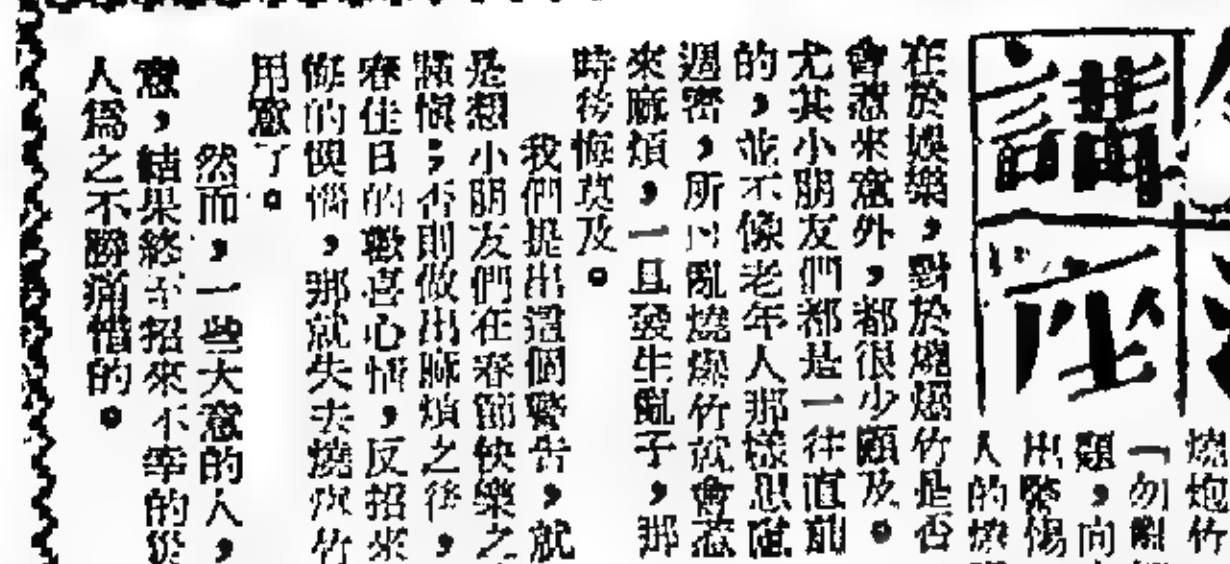 講座
燒炮竹
「勿亂
題，向
出警惕
人的燒
在於娛樂，對於燒爆竹是否
會惹來意外，都很少顧及。
尤其小朋友們都是一往直前
的，並不像老年人那樣思慮
週密，所以亂燒爆竹就會惹
來麻煩，一旦發生亂子，那
時後悔莫及。
我們提出這個警告，就
是想小朋友們在春節快樂之
懊惱，那就失去燒爆竹
春佳日的歡喜心情，反招來
用意了。
然而，一些大意的人，
意，結果終至招來不幸的
人爲之不勝痛惜的。